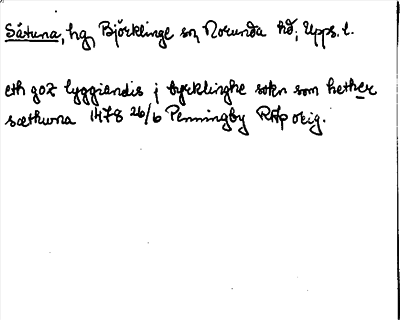 Såtuna, hg, Björklinge sn, Norunda hd, Upps. l.
eth goz lyggiandis j byrklinghe sokn som hether
sæthuna 1478 26/6 Penningby RAp orig.